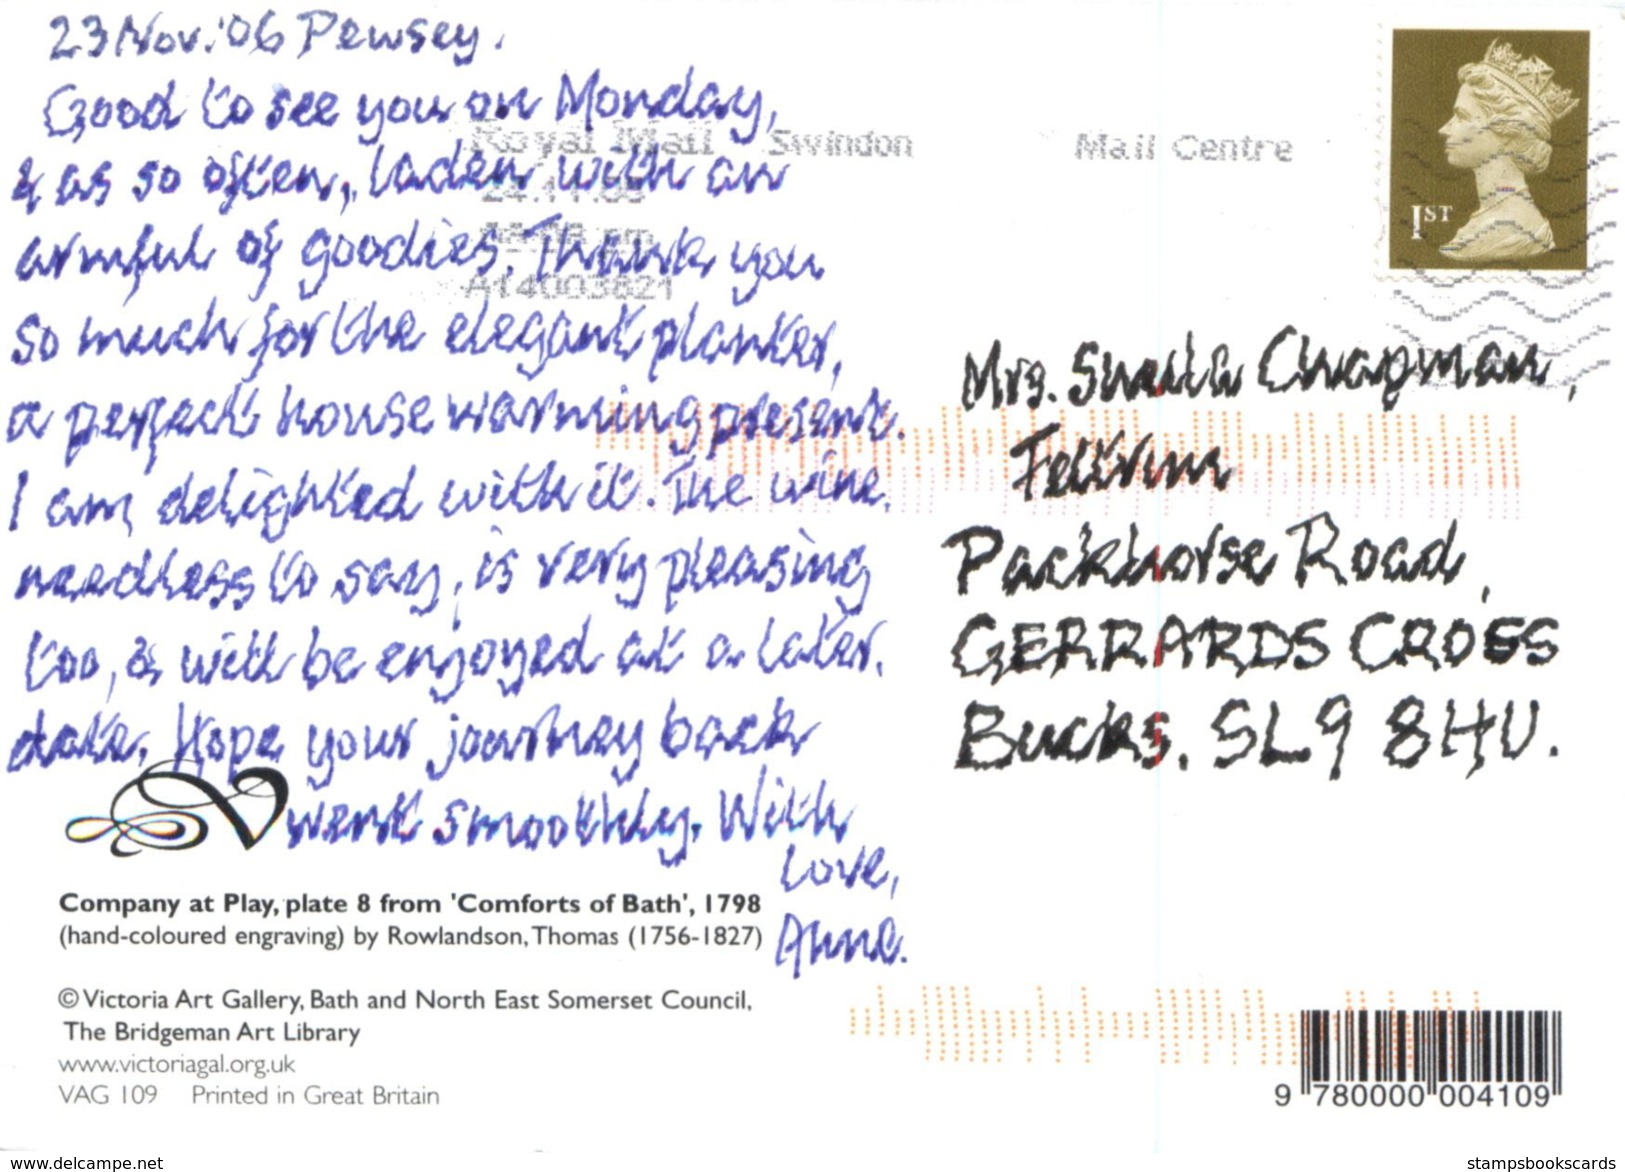 23 Nov. '06 Pewsey.
Good to see you on Monday,
& as so often, laden with an
armful of goodies. Thank you
so much for the elegant planter,
a perfect house warming present.
I am delighted with it. The wine,
needless to say, is very pleasing
too, & will be enjoyed at a later
date. Hope your journey back
went smoothly. With
Love,
Anne.
Royal Mail Swindon Mail Centre
24.11.06
A14003821
1ST
Mrs. Sheila Chapman,
Packhorse Road,
GERRARDS CROSS
Bucks. SL9 8HU.
Company at Play, plate 8 from 'Comforts of Bath', 1798
(hand-coloured engraving) by Rowlandson, Thomas (1756-1827)
© Victoria Art Gallery, Bath and North East Somerset Council,
The Bridgeman Art Library
www.victoriagal.org.uk
VAG 109 Printed in Great Britain
9 780000 004109
www.delcampe.net
stampsbookscards